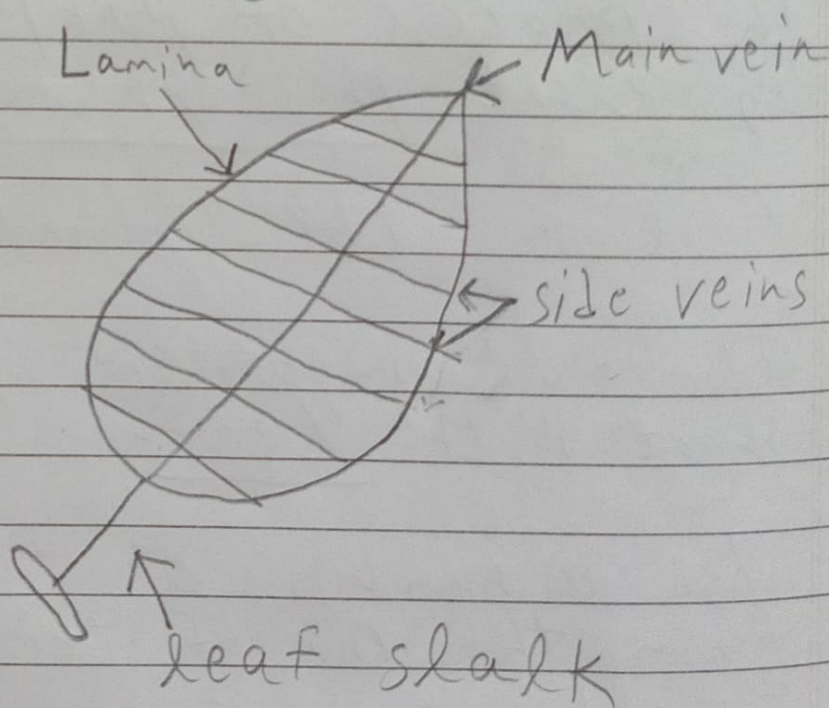 Lamina
Main vein
side veins
leaf slalk